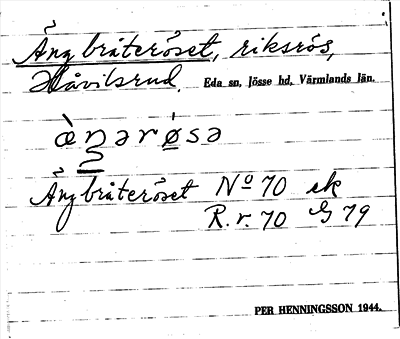 Ängbråteröset, riksrös,
Håvilsrud. Eda sn, Jösse hd, Värmlands län.
Ängbråteröset Nº 70 ek
R.r. 70 G 79
PER HENNINGSSON 1944.